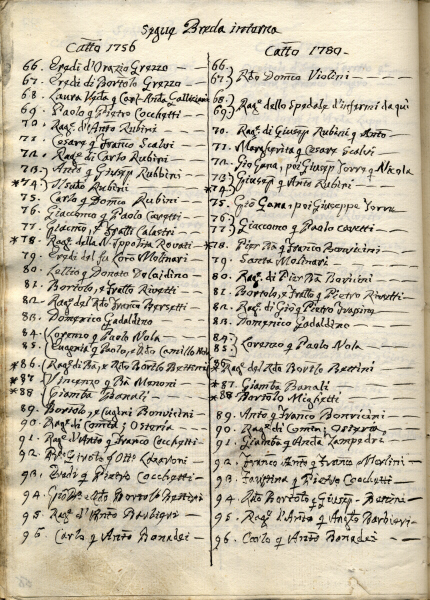 Segue Breda interna
Catto 1756
66. Eredi d'Orazio Grezzo
67. Eredi di Bortolo Grezzo
68. Laura Vida q Cont. Anda
69. Paolo q Pietro Cocchetti
70. Rage. d'Anto Rubini
71. Cesare q Franco Scalvi
72. Rage. di Carlo Rubini
73. Anto q Giusepe Rubbini
*74. Rubini
75. Carlo q Domco Rubini
76. Giacomo q Paolo Cavetti
77. Giacomo, e Fratti Calastri
*78. Rage. della N. Ippolita Rovati
79. Eredi del fu Loro Molinari
80. Lellio q Donato
81. Bortolo, e Fratto Rivetti
82. Rage. del Rdo Franco Bersetti
83. Domenico Gadaldino
84. Lorenzo q Paolo Nola
85. Eugenia q Paolo, e Rdo Camillo Nola
*86. Rage. di Ba, e Rdo Bortlo Bettini
*87. Vincenzo q Ba Menoni
*88. Giamba Banali
89. Bortolo, e Eugini Bonvicini
90. Rage. di Comin; Osteria
91. Rage. d'Anto q Franco Cocchetti
92. Girolo q Otto
93. Eredi q Pietro Cocchetti
94. e Rdo Bortolo Bettini
95. Rage. d'Anto Barbieri
96. Carlo q Anto Bonadei
Catto 1789
66.
67. Rdo Domco Violini
68.
69. Rage. dello Spedale d'infermi da qui
70. Rage. di Giusepe Rubini q Anto
71. Margherita q Cesare Scalvi
72. Gio Gana, poi Giusepe Torre q Nicola
73.
*74. Giusepe q Anto Rubini
75. Gio Gana, poi Giuseppe Torre
76.
77. Giacomo q Paolo Cavetti
*78. Pier Ba q Franco Bonvicini
79. Santo Molinari
80. Rage. di Pier Ba Bovicini
81. Bortolo, e Fratto q Pietro Rivetti
82. Rage. di Gio q Pietro
83. Domenico Gadaldino
84.
85. Lorenzo q Paolo Nola
*86. Rage. del Rdo Bortolo Bettini
*87. Giamba Banali
*88. Bortolo Mighetti
89. Anto q Franco Bonvicini
90. Rage. di Comin; Osteria
91. Giamba q Anda Lampedri
92. Franco Anto q Franco Merlini
93. Faustina q Pietro Cocchetti
94. Rdo Bortolo, e Giusepe Bettini
95. Rage. d'Anto q Barbieri
96. Carlo q Anto Bonadei